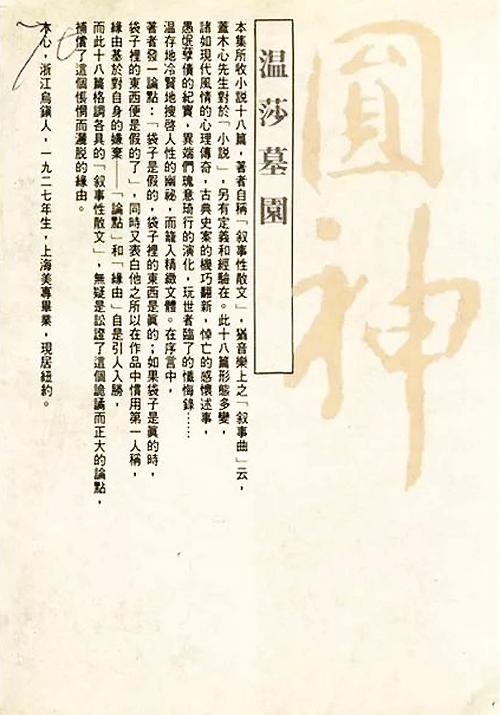 圓神
温莎墓園
本集所收小說十八篇，著者自稱「叙事性散文」，猶音樂上之「叙事曲」云，
蓋木心先生對於「小說」，另有定義和經驗在。此十八篇形態多變，
諸如現代風情的心理傳奇，古典史案的機巧翻新，悼亡的感懷述事，
愚妮孽債的紀實，異端們瑰意琦行的演化，玩世者臨了的懺悔錄……
温存地冷賢地搜啓人性的幽祕，而籠入精緻文體。在序言中，
著者發一論點：「袋子是假的，袋子裡的東西是眞的；如果袋子是眞的時，
袋子裡的東西便是假的了」，同時又表白他之所以在作品中慣用第一人稱，
緣由基於對自身的嫌棄——「論點」和「緣由」自是引人入勝，
而此十八篇格調各具的「叙事性散文」，無疑是訟證了這個詭譎而正大的論點，
補償了這個悵惘而灑脱的緣由。
木心，浙江烏鎮人，一九二七年生，上海美專畢業，現居紐約。